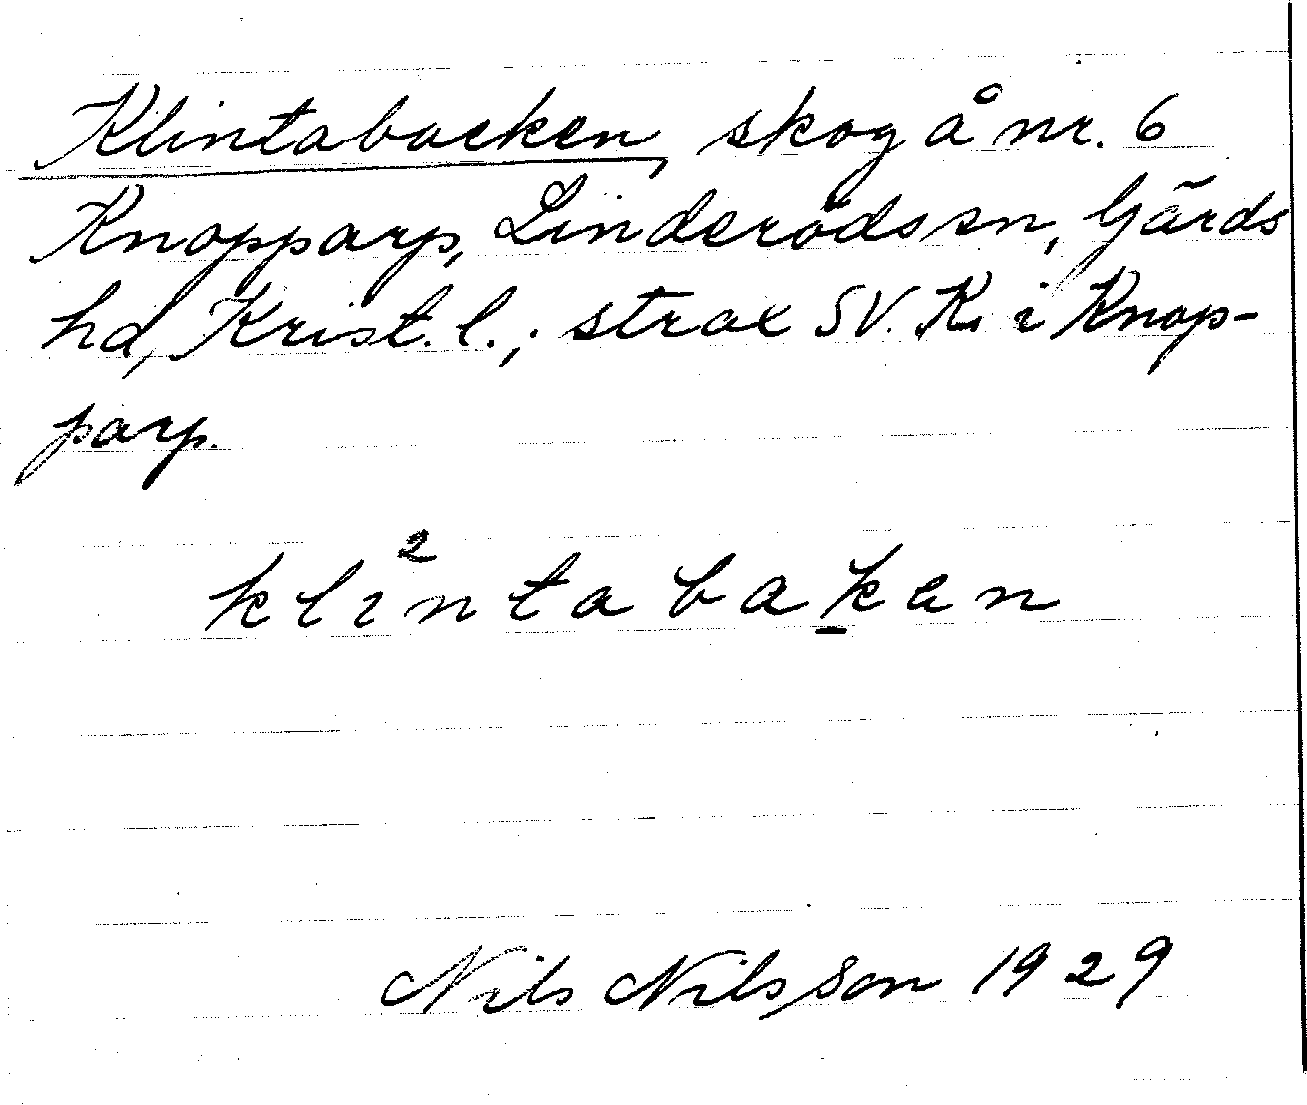 Klintabacken, skog å nr. 6
Knopparp, Linderödssn, Gärds
hd, Krist. l.; strax SV. K. i Knop-
parp.
kli²ntabaḵen
Nils Nilsson 1929